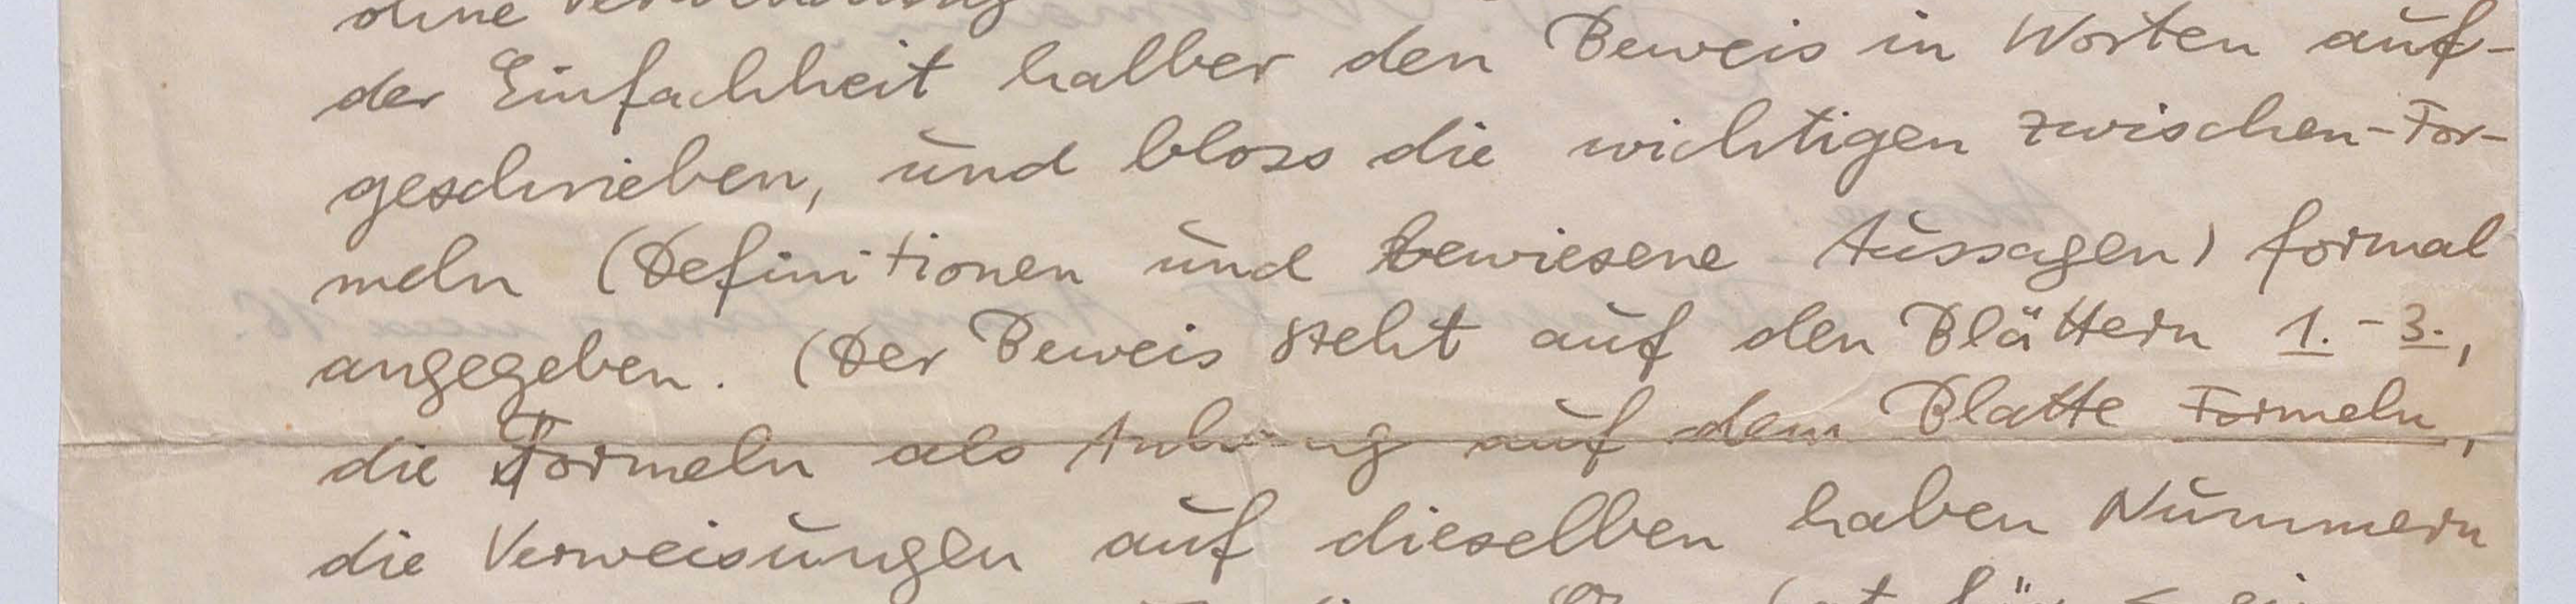 ohne
der Einfachheit halber den Beweis in Worten auf-
geschrieben, und bloss die wichtigen zwischen-For-
meln (Definitionen und bewiesene Aussagen) formal
angegeben. (Der Beweis steht auf den Blättern 1.-3.,
die Formeln als Anhang auf dem Blatte Formeln,
die Verweisungen auf dieselben haben Nummern